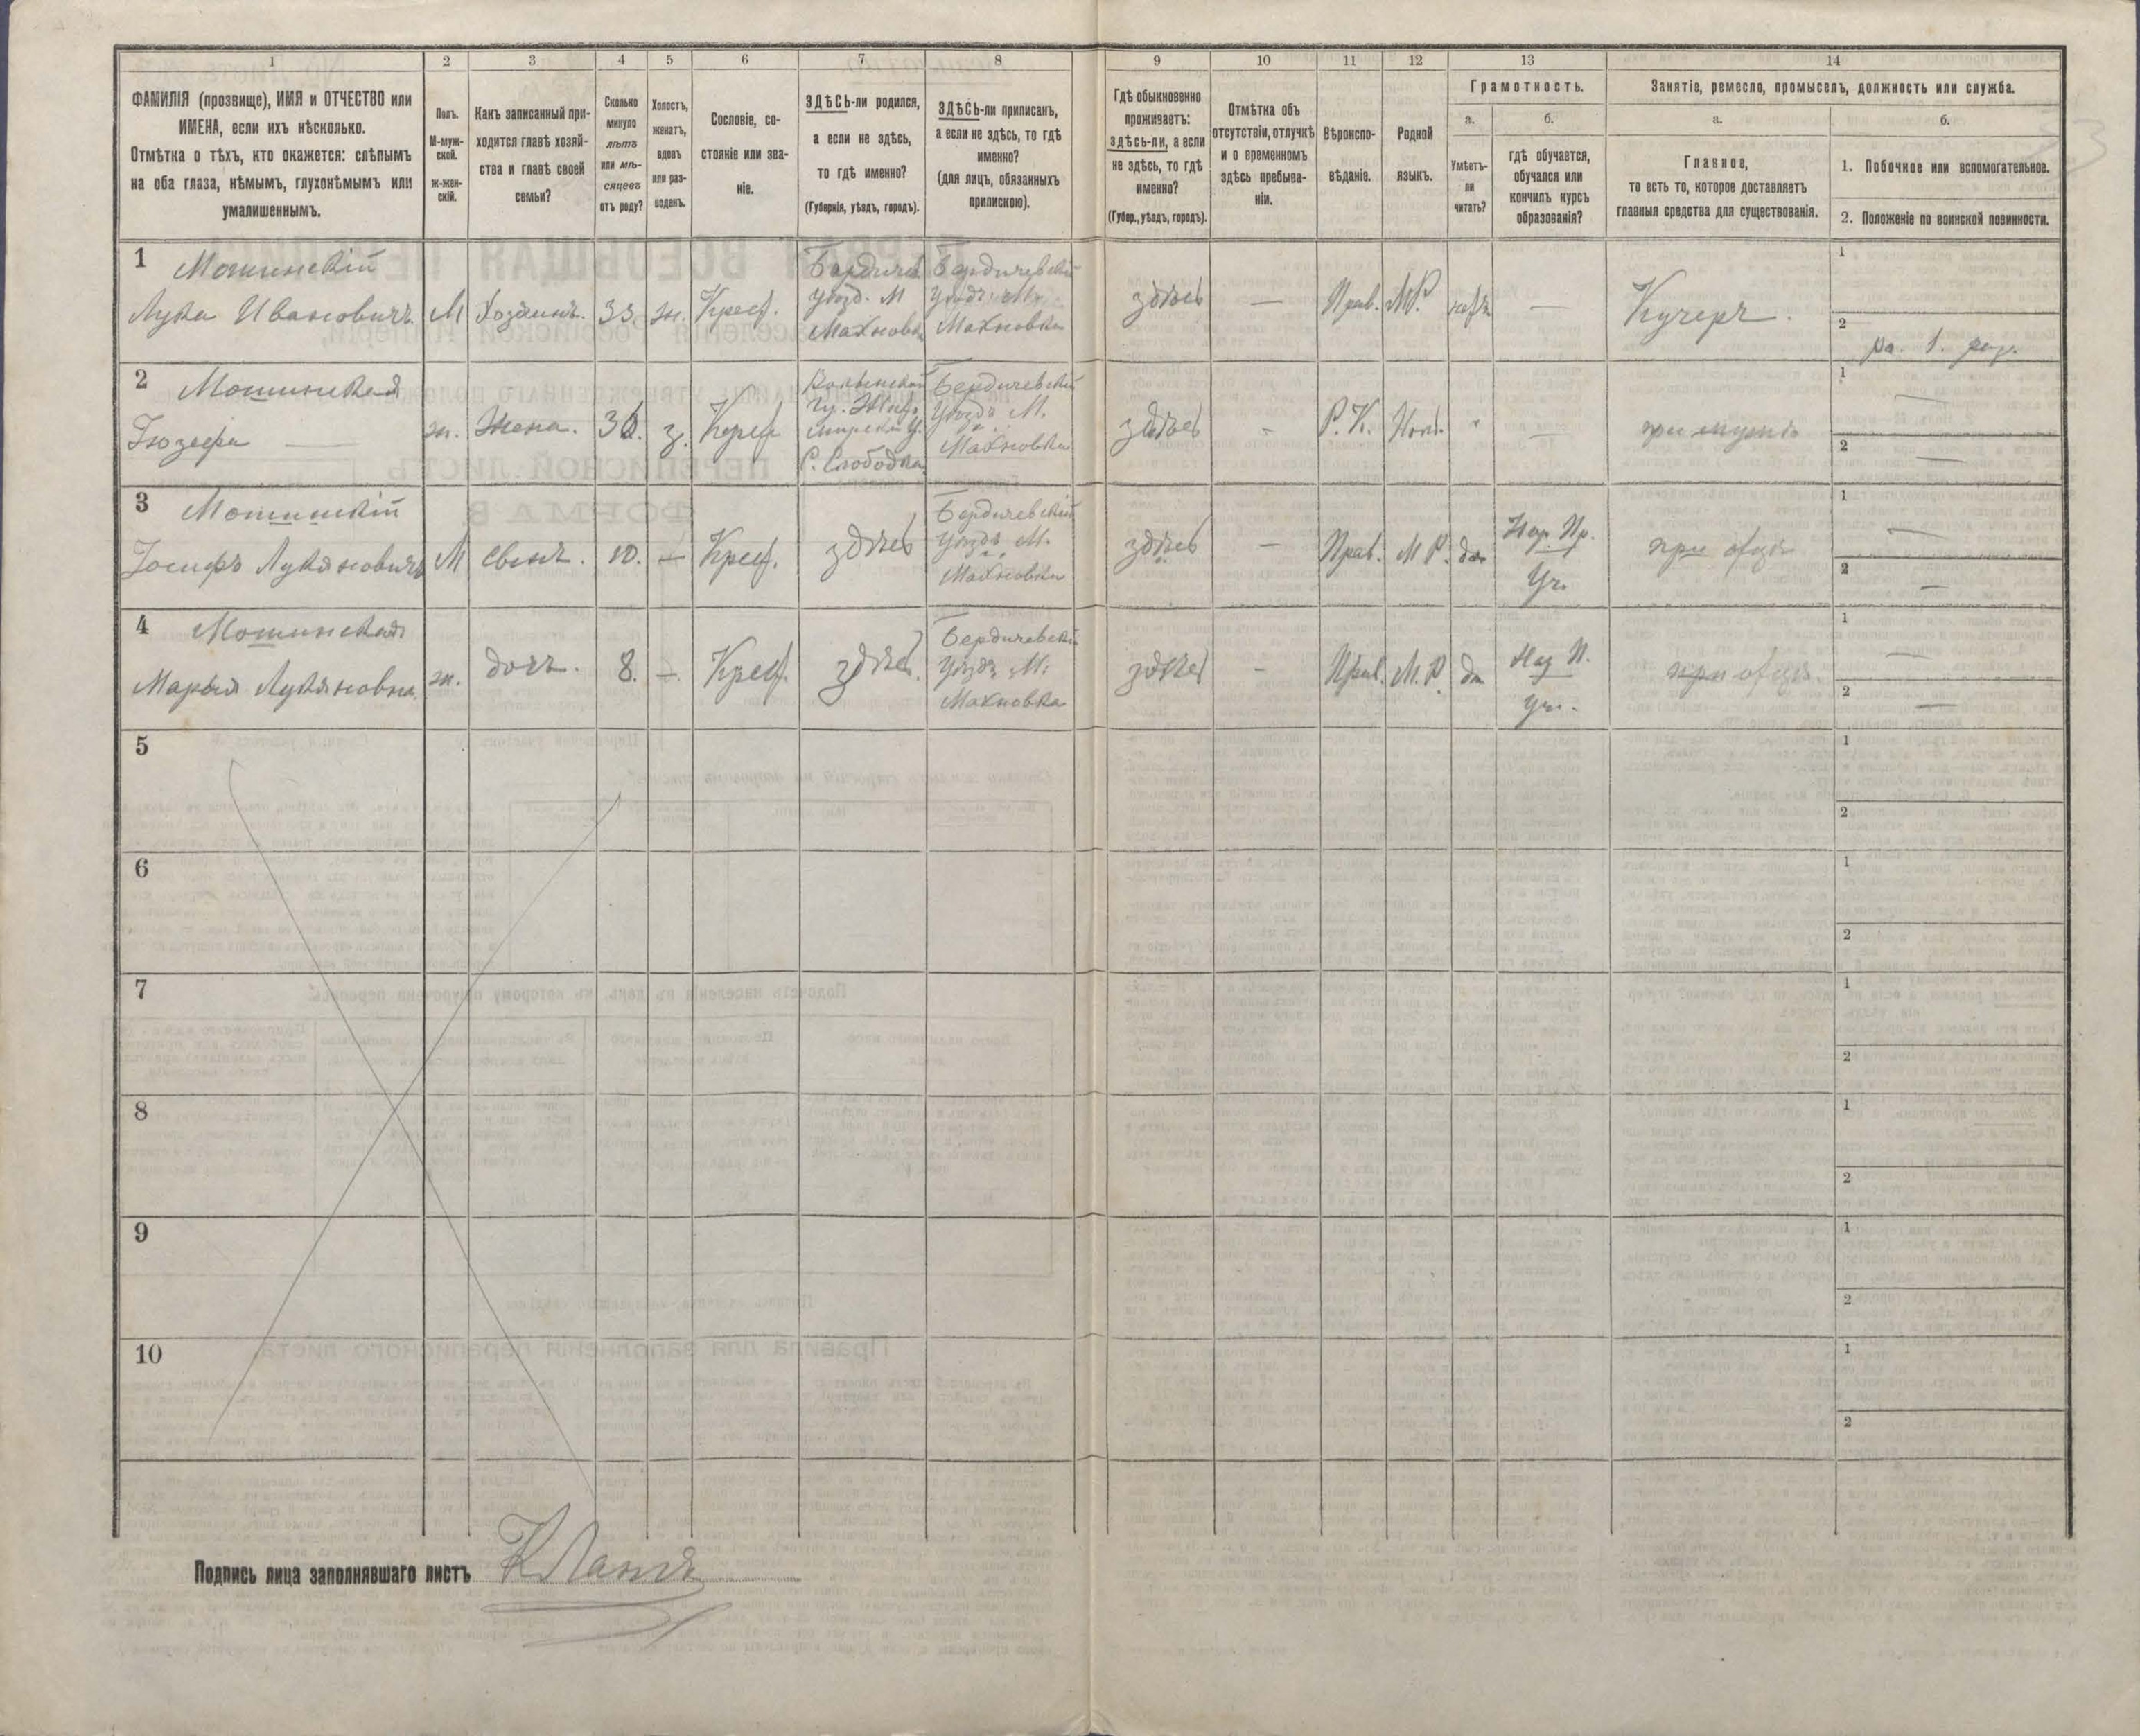 1 2 3 4 5 6 7 8 9 10 11 12 13 14
ФАМИЛІЯ (прозвище), ИМЯ и ОТЧЕСТВО или
ИМЕНА, если ихъ нѣсколько.
Отмѣтка о тѣхъ, кто окажется: слѣпымъ
на оба глаза, нѣмымъ, глухонѣмымъ или
умалишеннымъ.
Полъ.
М-муж-
ской.
ж-жен-
скій.
Какъ записанный при-
ходится главѣ хозяй-
ства и главѣ своей
семьи?
Сколько
минуло
лѣтъ
или мѣ-
сяцевъ
отъ роду?
Холостъ,
женатъ,
вдовъ
или раз-
веденъ.
Сословіе, со-
стояніе или зва-
ніе.
ЗДѢСЬ-ли родился,
а если не здѣсь,
то гдѣ именно?
(Губернія, уѣздъ, городъ).
ЗДѢСЬ-ли приписанъ,
а если не здѣсь, то гдѣ
именно?
(для лицъ, обязанныхъ
припискою).
Гдѣ обыкновенно
проживаетъ:
здѣсь-ли, а если
не здѣсь, то гдѣ
именно?
(Губер., уѣздъ, городъ).
Отмѣтка объ
отсутствіи, отлучкѣ
и о временномъ
здѣсь пребыва-
ніи.
Вѣроиспо-
вѣданіе.
Родной
языкъ.
Грамотность.
а.
Умѣетъ-
ли
читать?
б.
гдѣ обучается,
обучался или
кончилъ курсъ
образованія?
Занятіе, ремесло, промыселъ, должность или служба.
а.
Главное,
то есть то, которое доставляетъ
главныя средства для существованія.
б.
1. Побочное или вспомогательное.
2. Положеніе по воинской повинности.
1 Мошинскій
Лука Ивановичъ
М
Хозяинъ.
33.
ж.
Крест.
Бердичев
уѣзд. М
Махновк
Бердичевскій
уѣздъ М.
Махновка
здѣсь
—
Прав.
М.Р.
нѣтъ
—
Кучеръ.
1
2
1. раз.
2 Мошинская
Іозефа —
ж.
Жена.
36.
з.
Крест
Волынской
гу. Жит
омирскій у.
С. Слободка
Бердичевскій
уѣздъ М.
Махновка
здѣсь
-
Р. К.
Пол.
"
—
при мужѣ
1 —
2 —
3 Мошинскій
Іосифъ Лукяновичъ
М
сынъ.
10.
—
Крест.
здѣсь
Бердичевскій
уѣздъ М.
Махновка
здѣсь
—
Прав.
М Р.
да
Нар. Пр.
Уч.
при отцѣ
1 —
2 —
4 Мошинская
Марья Лукяновна.
ж.
дочь.
8.
—.
Крест.
здѣсь.
Бердичевскій
уѣздъ М.
Махновка
здѣсь
-
Прав.
М. Р.
да
Нар П.
уч.
при отцѣ.
1 —
2 —
5
1
2
6
1
2
7
1
2
8
1
2
9
1
2
10
1
2
Подпись лица заполнявшаго листъ